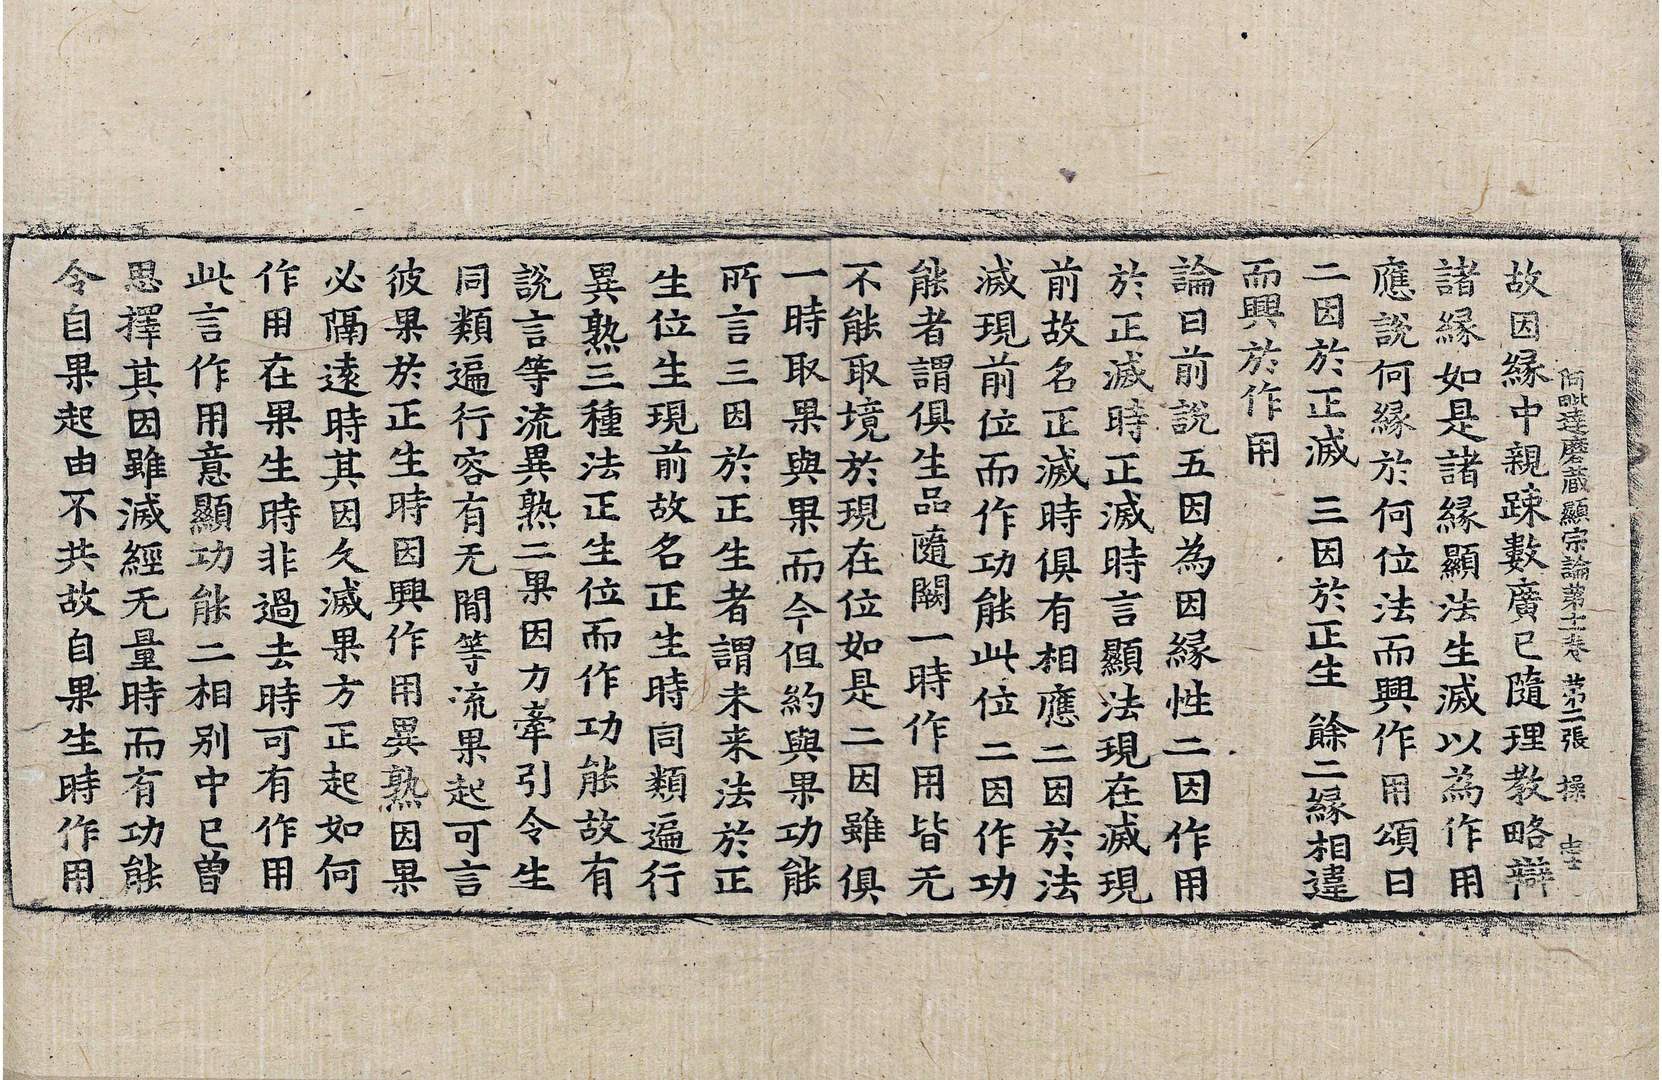 阿毗達磨蔵顯宗論第十一卷 第二張 操
故因縁中親踈數廣已隨理教略辯
諸縁如是諸縁顯法生滅以為作用
應說何縁於何位法而興作用頌曰
二因於正滅 三因於正生 餘二縁相違
而興於作用
論曰前說五因為因縁性二因作用
於正滅時正滅時言顯法現在滅現
前故名正滅時俱有相應二因於法
滅現前位而作功能此位二因作功
能者謂俱生品隨闕一時作用皆无
不能取境於現在位如是二因雖俱
一時取果與果而今但約與果功能
所言三因於正生者謂未来法於正
生位生現前故名正生時同類遍行
異熟三種法正生位而作功能故有
說言等流異熟二果因力牽引令生
同類遍行容有无間等流果起可言
彼果於正生時因興作用異熟因果
必隔遠時其因久滅果方正起如何
作用在果生時非過去時可有作用
此言作用意顯功能二相别中已曽
思擇其因雖滅經无量時而有功能
令自果起由不共故自果生時作用